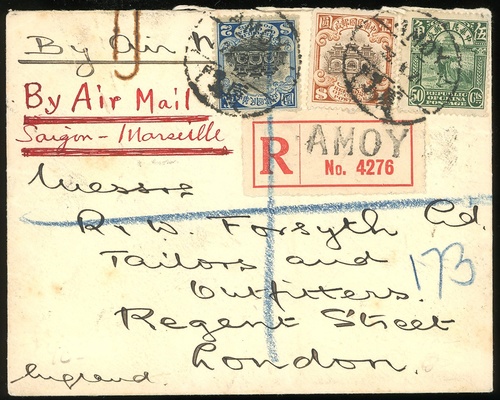 By Air
By Air Mail
Saigon - Marseille
AMOY
R AMOY
No. 4276
50 CTS
REPUBLIC
OF CHINA
POSTAGE
Messrs
R. W. Forsyth Ld.
Tailors and
Outfitters.
173
Regent Street
London.
England.